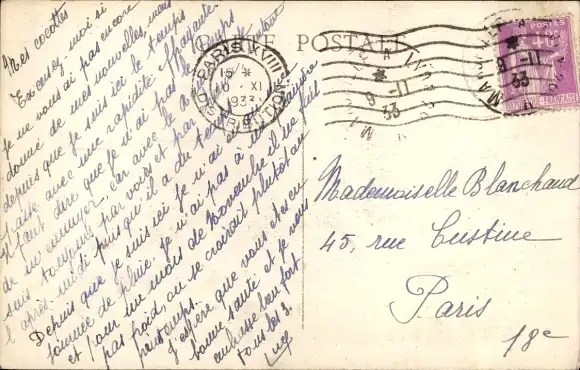 CARTE POSTALE
PARIS XVIII
15 *
10 XI
1933
DISTRIBUTION
9 -11
33
9 -11
33
POSTES
REPUBLIQUE FRANÇAISE
Mes cocottes
Excusez-moi si
je ne vous ai pas encore
donné de mes nouvelles, mais
depuis que je suis ici le temps
passe avec une rapidité effrayante
Il faut dire que je n'ai pas le temps
de m'ennuyer, car avec le
suis toujours par voies et par
l'après-midi puisqu'il a du
Depuis que je suis ici je n'ai eu
journée de pluie. Je n'ai pas à me plaindre
et pour un mois de Novembre il ne fait
pas froid, on se croirait plutôt au
printemps.
J'espère que vous êtes en
bonne santé et je vous
embrasse bien fort
tous les 3.
Luce
Mademoiselle Blanchaud
45, rue Custine
Paris
18e